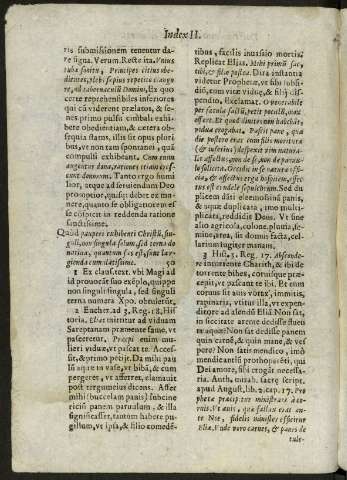 Index II.
ris submissionem tenentur da-
re signa. Verum. Recte ita. Vnius
tuba sonitu, Principes citius obe-
dientes, plebs sæpius repetito clango-
re, ad tabernaculũ Domini, Ex quo
certe reprehensibiles inferiores
qui cũ viderent prælatos, & se-
niores primo pulsu cimbali exhi-
bere obedientiam, & cætera ob-
sequia status, illis sit opus pluri-
bus, vt non tam spontanei, quã
compulsi exhibeant. Cum enim
augentur dona, rationes etiam cres-
cunt donorum. Tanto ergo humi
lior, atque ad seruiendum Deo
promptior, quisq; debet ex mu-
nere, quanto se obligatiorem es
se cõspicit in reddenda ratione
sanctissime.
Quod pauperes exhibenti Christũ, sin-
guli, non singula solum, sed terna do-
natiua, quantum sps est, sunt lar-
gienda cumulatissime. 60
1 Ex claus. text. vbi Magi ad
id prouocãt suo exẽplo, quippe
non singuli singula, sed singuli
terna numera Xpo. obtulerũt.
2 Eucher. ad 3. Reg. 18. His
toria. Elias mittitur ad viduam
Sareptanam præmente fame, vt
pasceretur. Præcepi enim mu-
lieri viduæ, vt pascat te. Acces-
sit, & primo petijt. Da mihi pau
lũ aquæ in vase, vt bibã, & cum
pergeret, vt afferret, clamauit
post tergum eius dicens. Affer
mihi (buccelam panis) subcine
ricium panem paruulum, & illa
significasset, tantum habere pu-
gillum, vt ipsa, & filio comedẽ-
tibus, facilis inuasio mortis.
Replicat Elias. Mihi primũ fac,
tibi, & filiæ postea. Dira instantia
videtur Prophetæ, vt sibi tan-
tũm, cum vitæ viduę, & filij dis-
pendio, Exclamat. O vocabile
per sæcula factũ, petit pocullũ, mox
affert. Et quod dimitteret non habebat,
vidua erogabat. Pascit pare, qua
die postero eras cum filÿs moritura
& (inferius) despexit vim naturæ
lis affectus, non de se, non de paruu-
lo solicita. Occidit in se naturæ offi-
ciũ, & affectus erga hospitem, effec-
tus est eidele sepulchrum. Sed du
plicem dati eleemosinã panis,
& aquæ duplicata, imo multi-
plicata, reddidit Deus. Vt sine
alio agricola, colone, pluuia, se-
mine, area, sit domus facta, cel-
larium iugiter manans.
3 Hist. 3. Reg. 17. Absconde-
re in torrente Charith, & ibi de
torrente bibes, coruisque præ-
cæpit, vt pascant te ibi. Et cum
corpus sit auis voràx, immitis,
rapinaria, vsitus illa, vt expen-
ditore ad alendũ Eliã Non sat,
vt incitate arente dedisset aues
in asseclam? Non sat dedisse panem
quin carnẽ, & quin mane, & ves
pere? Non satis mendico, imò
mendicanti protho parẽti, qui
Dei amore, sibi erogãt necessa-
ria. Auth. mirab. sacrę script.
apud August. lib. 2. cap. 17. Pro
phetæ præcipitur ministrare A-
uenis. Vt auis, quæ fallax erat an-
te Noe, fidelis minister efficitur
Eliæ. Vnde vero carnes, & panes de
tule-